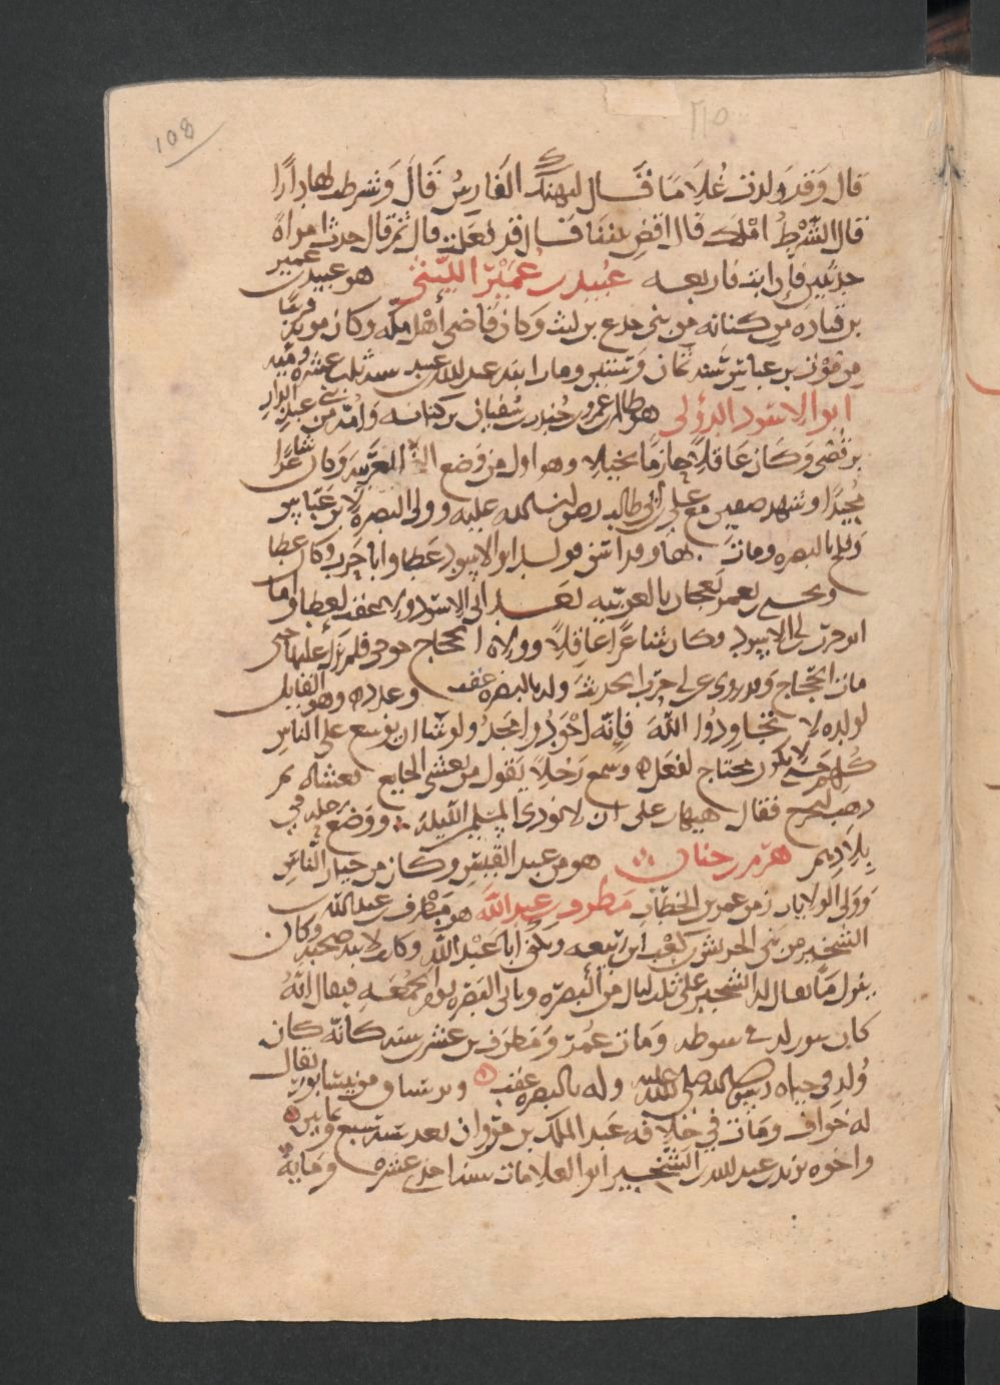 108
قال وَقد وَلدت غُلامًا فقال ليهنك الفَارِسُ قال وَشرطت لها دارًا
قال الشَّرطُ امْلك قال اقضِ بيننا فقال قد فعلت قال ثم قال حدث امراة
حديثين فإن ابت فاربعه عُبيد بن عُمَيْر الليثي هو عبيد بن عمير
بن قتاده من كنانه من بني جدع بن ليث وَكان قاضي أهْل مكة وكان موته
من مَوْت بن عباس سنه ثمان وَستين ومات ابنه عبد الله بن عبيد سنه ثلث عشره وميه
ابو الاسود الدؤلى هو ظالم بن عمرو بن جندل بن سُفيان بن كنانه وَامّه من بني عبد الدار
بن قُصي وَكان عَاقلًا حازمًا بخيلا وهو اول من وَضع العربية وَكان شاعرًا
مُجيدًا وشهد صفين مع علي بن ابي طالب رضوان الله عليه وولى البصرة لابن عَبّاس
وَفلج بالبصره ومات بها وقد اسن فولد ابو الاسود عَطا وابا حَرب وكان عطا
ويحيى بن يعمر بَعجَا العربيه بعد ابي الاسود ولا عقب لعطا واما
ابو حرب بن ابي الاسود وكان شاعرًا عاقِلًا وولاه الحجاج جوخى فلم يزل عليها حتى
مات الحجّاج وَقد روى عن ابي حرب الحديث وله بالبصره عقب وعدد وهو القايل
لولده لا تجاودُوا اللّهَ فإنّه اجْوَدُ وامَجدُ ولو شا ان يوسع على النّاسِ
كلهم حتى لا يكون محتاج لفعَل وسمع رَجلًا يَقول من يعشى الجايع فعشاه ثم
ذهب ليخرج فقال هيهات على ان لا توذى المسلمين الليلة ووضع رجله في
بِالادهم هرم بن حيان هو من عبد القَيسِ وكان من خيار النّاسِ
وَولى الولايات زمن عمر بن الخطّابِ مَطرف بن عبد اللّه هو مَطرف بن عبد الله بن
الشخير من بني الحريش بن كعْب بن ربيعه وَيكنى أبا عَبْد اللّه وكان لابيه صحبه وكان
ينزل مآء يقال له الشخير على ثلث ليال من البصرة وياتي البصره يوم الجمُعَهِ فيقال انّه
كان ينور له في سوطه وَمات عُمرُ وَمُطرف بن عشرين سنه كانّه كان
وُلد في حياه رسول الله صلى الله عليه وله بالبصره عقب ونرساو من نيسابور يقال
له خَواف ومات في خلافه عَبد الملك بن مروان بعد سنه سبع وثمانين
واخوه يزيد بن عبد الله بن الشخّير ابو العلا مات سنه احدى عشره ومايه